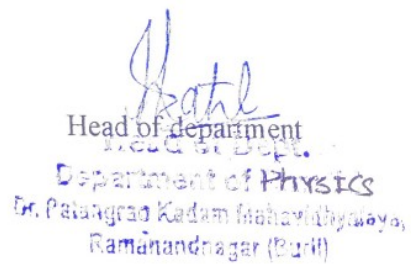 Head of department
Head of Dept.
Department of Physics
Dr. Patangrao Kadam Mahavidhyalaya,
Ramanandnagar (Burli)